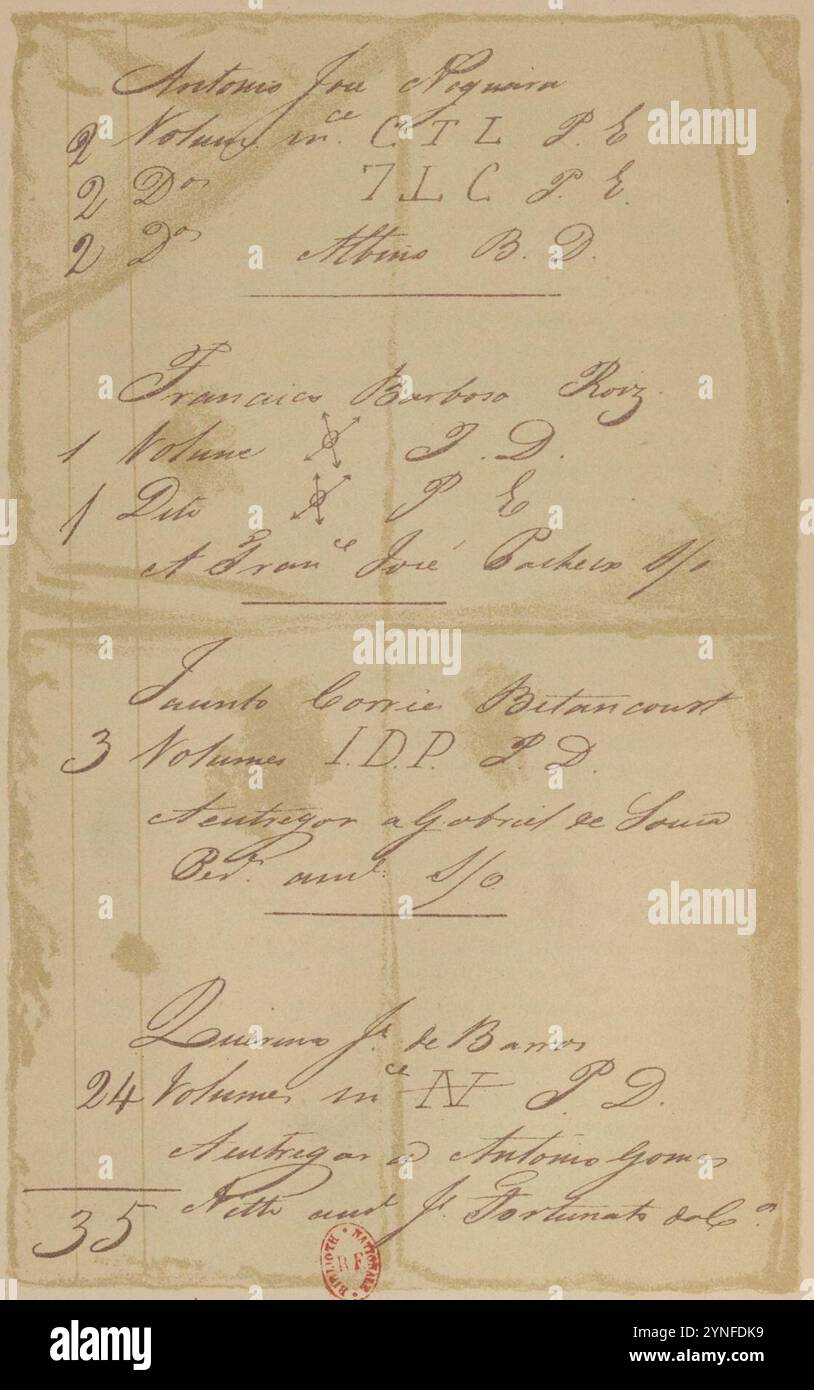 Antonio José Nogueira
2 Volum. m.ce C T L P. E
2 Dos 7 L C P. E.
2 Dos Albino B. D.
Francisco Barboso Roiz.
1 Volume P. D.
1 Dito P E
A Fran.ce José Pacheco S/o
Jacinto Correa Bitancourt
3 Volumes I.D.P. P. D.
A entregar a Gabriel de Souza
S/o
Quirino Je. de Barros
24 Volumes m.ce P. D.
A entregar a Antonio Gomes
Netto Je. Fortunato da Ca
35
BIBLIOTH NATIONALE
R F
alamy
Image ID: 2YNFDK9
www.alamy.com